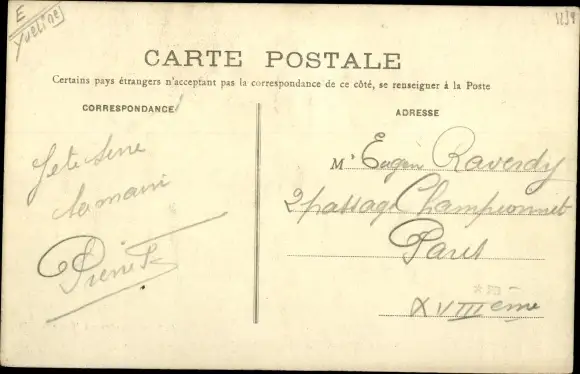 E
Yveline
1239
CARTE POSTALE
Certains pays étrangers n'acceptant pas la correspondance de ce côté, se renseigner à la Poste
CORRESPONDANCE
ADRESSE
Je te serre
la main
Pierre
Mr Eugèn Raverdy
2 passage Championnet
Paris
XVIIIème